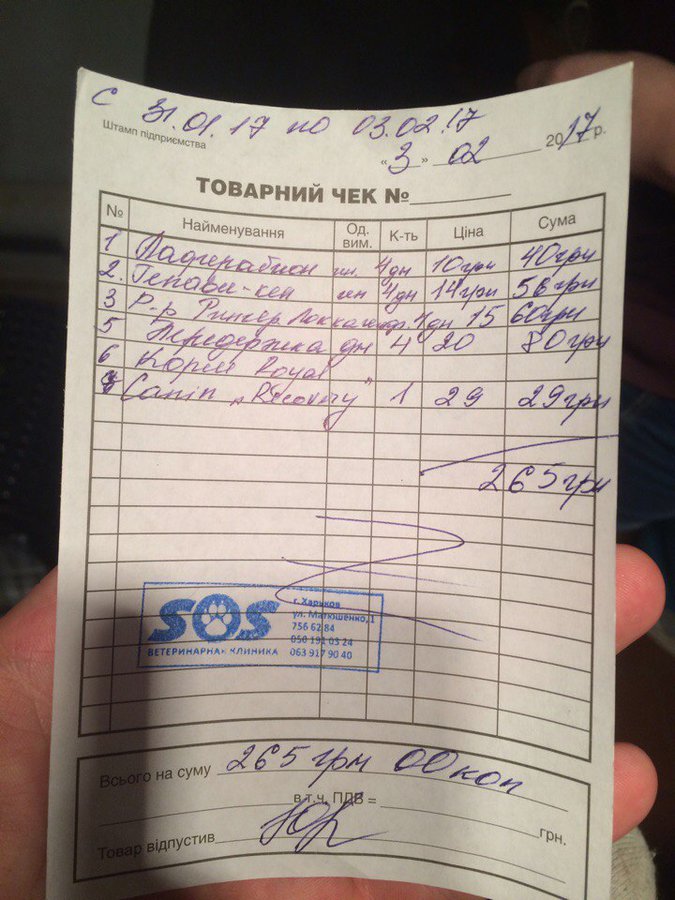 с 31.01.17 по 03.02.17
Штамп підприємства
« 3 » 02 2017 р.
ТОВАРНИЙ ЧЕК №
№ Найменування Од. вим. К-ть Ціна Сума
1 4дн 10грн 40грн
2. Гепави-кел 4дн 14грн 56грн
3 Р-р Рингер 4дн 15 60грн
5 Передержка дн 4 20 80грн
6 Корм Royal
7 Canin „Recovery" 1 29 29грн
265грн
SOS
ВЕТЕРИНАРНАЯ КЛИНИКА
г. Харьков
ул. Матюшенко,1
756 62 84
050 191 03 24
063 917 90 40
Всього на суму 265 грн 00 коп
в т.ч. ПДВ =
грн.
Товар відпустив